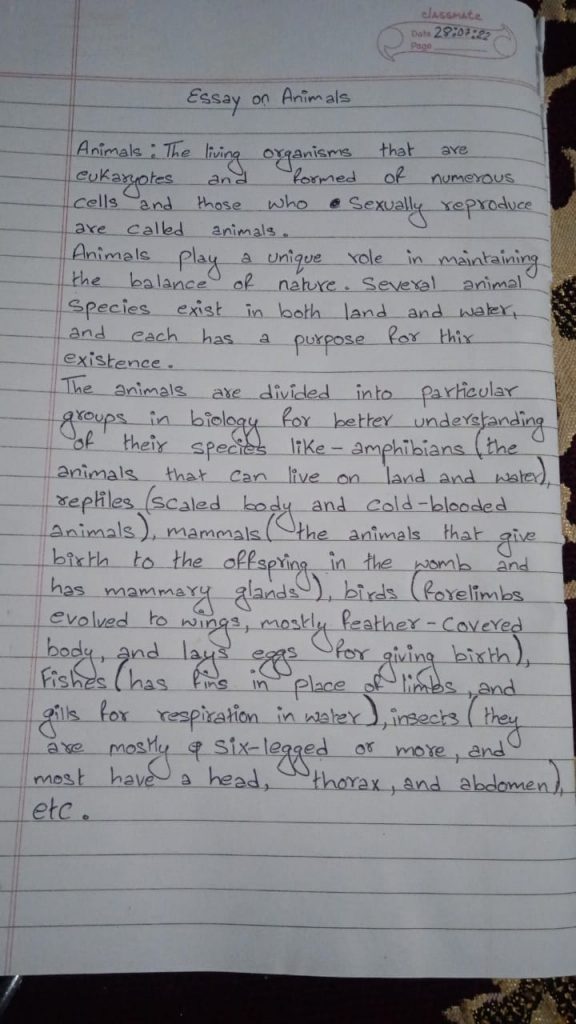 classmate
Date 28:07:22
Page
Essay on Animals
Animals : The living organisms that are
eukaryotes and formed of numerous
cells and those who sexually reproduce
are called animals.
Animals play a unique role in maintaining
the balance of nature. Several animal
species exist in both land and water,
and each has a purpose for thir
existence.
The animals are divided into particular
groups in biology for better understanding
of their species like - amphibians (the
animals that can live on land and water),
reptiles (scaled body and cold-blooded
animals), mammals (the animals that give
birth to the offspring in the womb and
has mammary glands), birds (forelimbs
evolved to wings, mostly feather-covered
body, and lays eggs for giving birth),
Fishes (has fins in place of limbs, and
gills for respiration in water), insects (they
are mostly six-legged or more, and
most have a head, thorax, and abdomen),
etc.